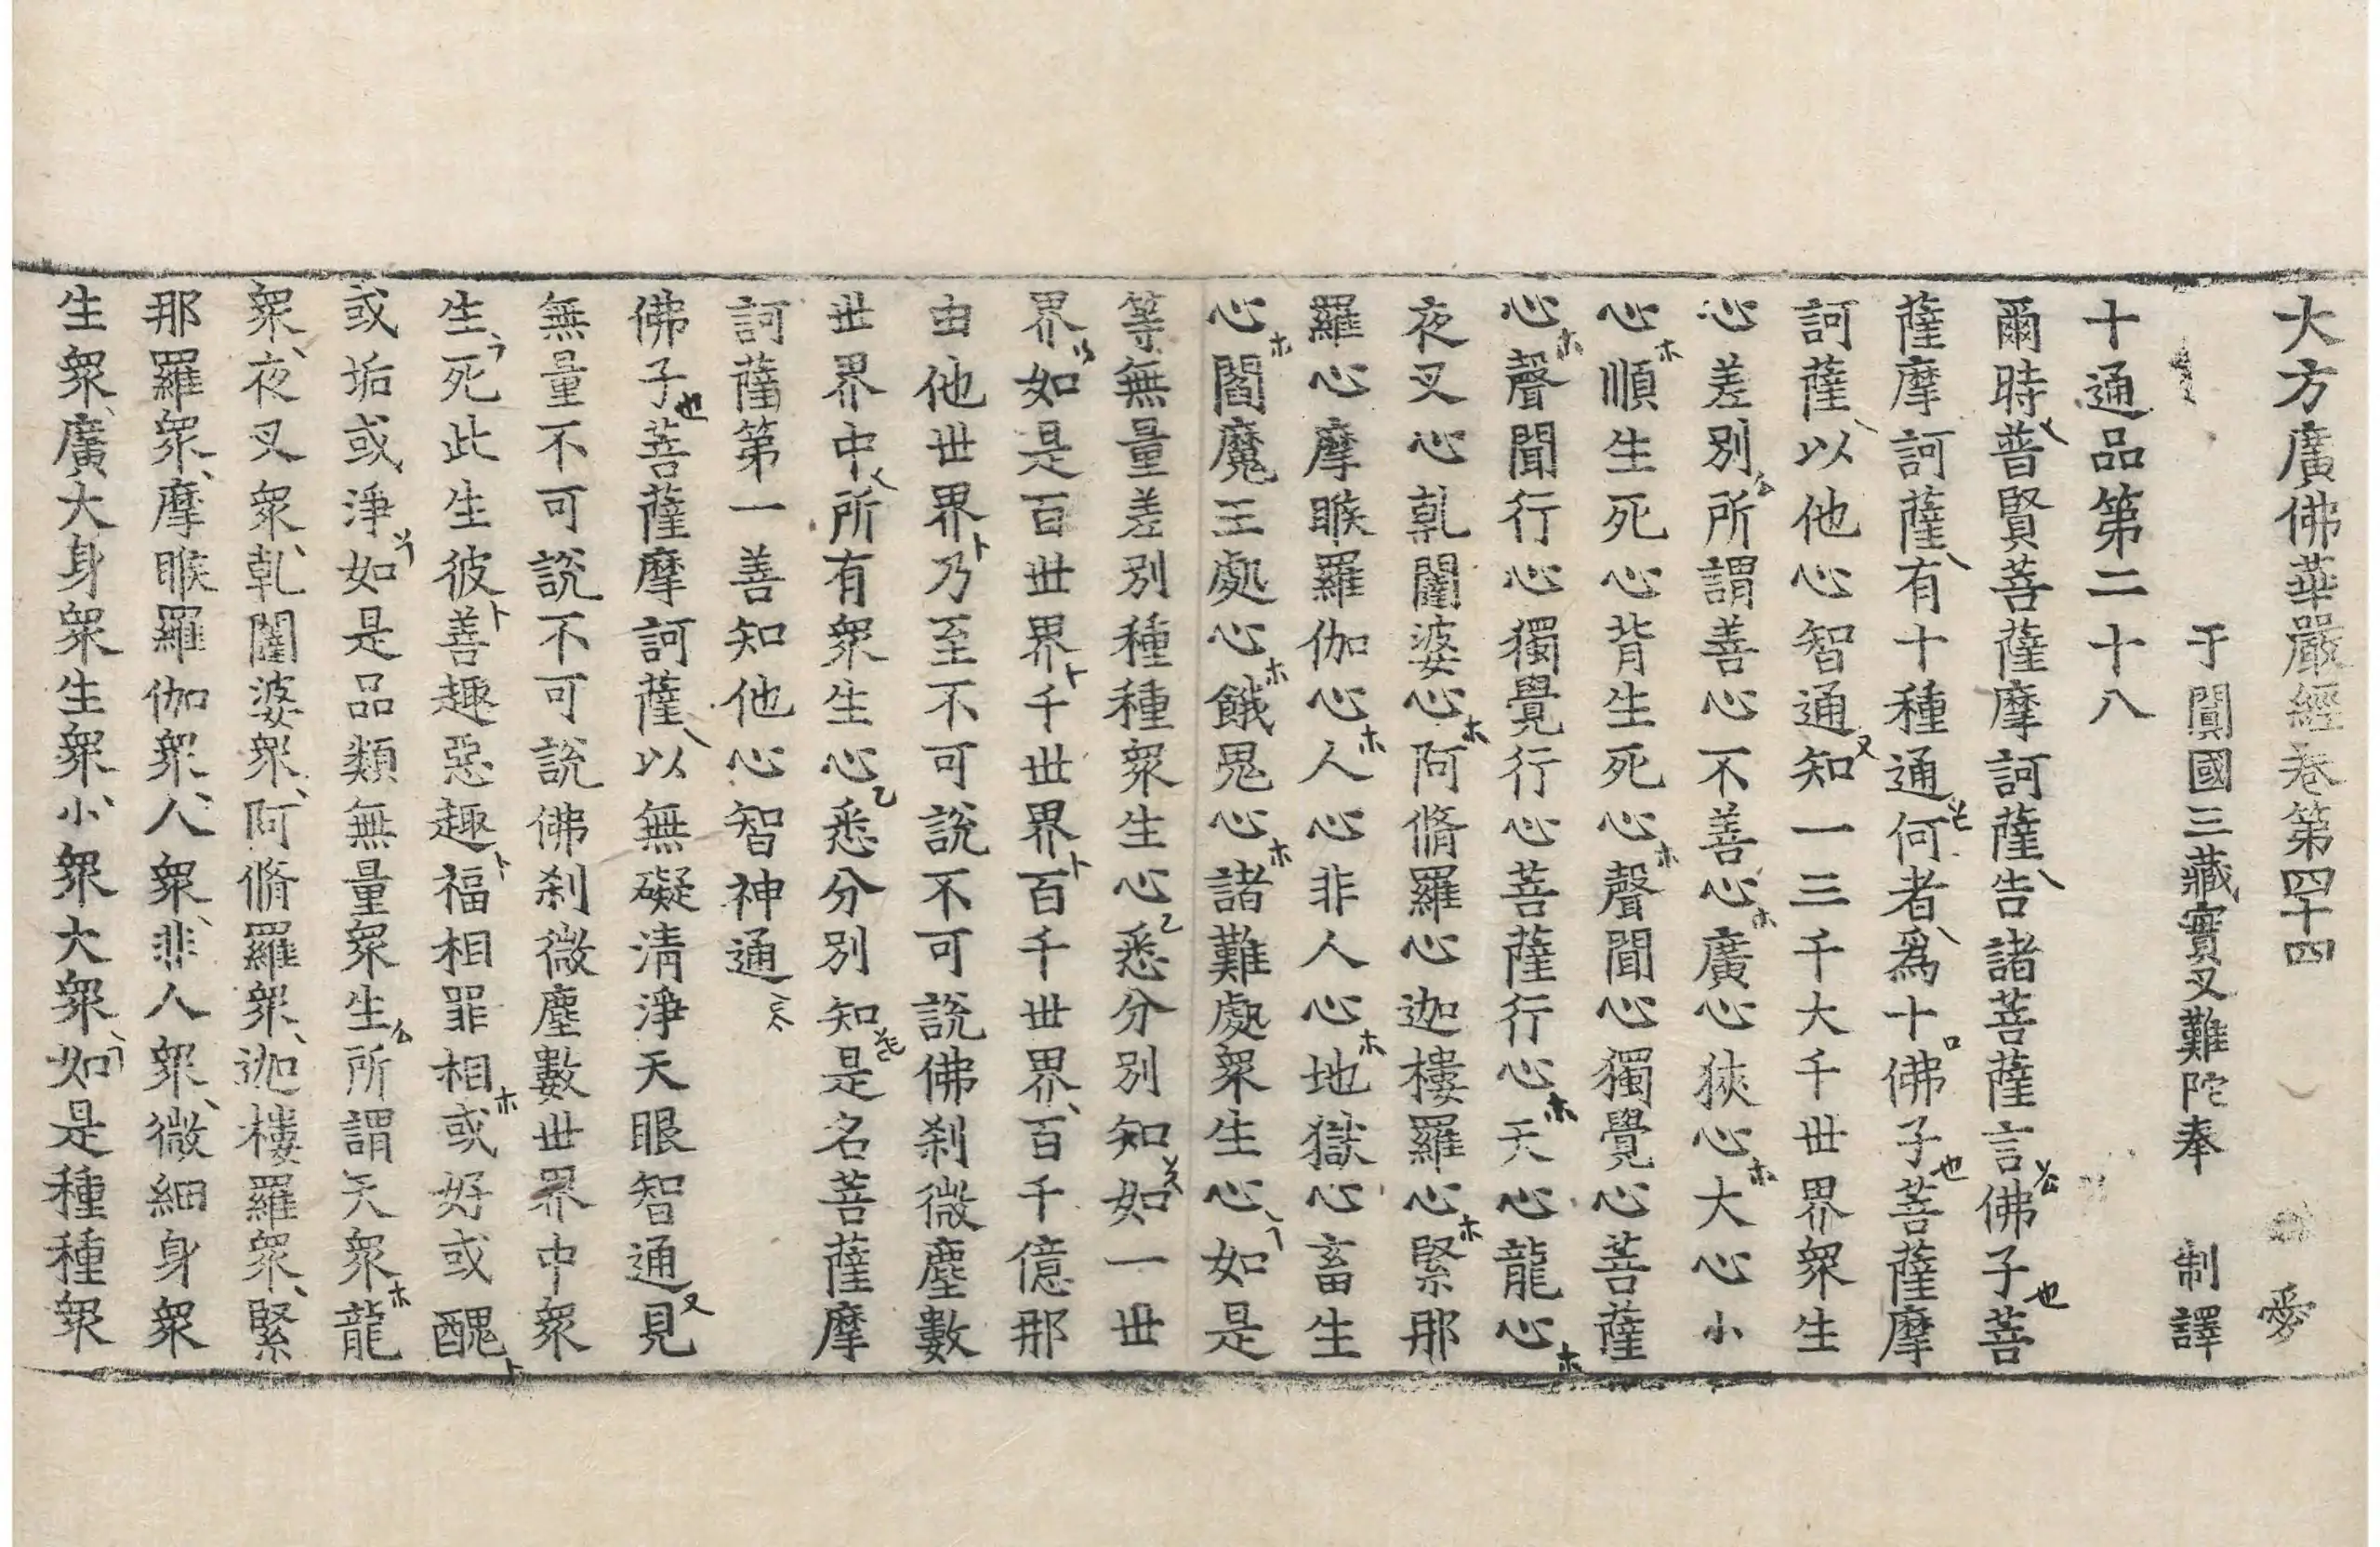 大方廣佛華嚴經卷第四十四 愛
于闐國三藏實叉難陀奉 制譯
十通品第二十八
爾時普賢菩薩摩訶薩告諸菩薩言佛子菩
薩摩訶薩有十種通何者爲十佛子菩薩摩
訶薩以他心智通知一三千大千世界衆生
心差別所謂善心不善心廣心狹心大心小
心順生死心背生死心聲聞心獨覺心菩薩
心聲聞行心獨覺行心菩薩行心天心龍心
夜叉心乹闥婆心阿脩羅心迦樓羅心緊那
羅心摩睺羅伽心人心非人心地獄心畜生
心閻魔王處心餓鬼心諸難處衆生心如是
等無量差別種種衆生心悉分別知如一世
界如是百世界千世界百千世界百千億那
由他世界乃至不可說不可說佛刹微塵數
世界中所有衆生心悉分別知是名菩薩摩
訶薩第一善知他心智神通
佛子菩薩摩訶薩以無礙淸淨天眼智通見
無量不可說不可說佛刹微塵數世界中衆
生死此生彼善趣惡趣福相罪相或好或醜
或垢或淨如是品類無量衆生所謂天衆龍
衆夜叉衆乹闥婆衆阿脩羅衆迦樓羅衆緊
那羅衆摩睺羅伽衆人衆非人衆微細身衆
生衆廣大身衆生衆小衆大衆如是種種衆